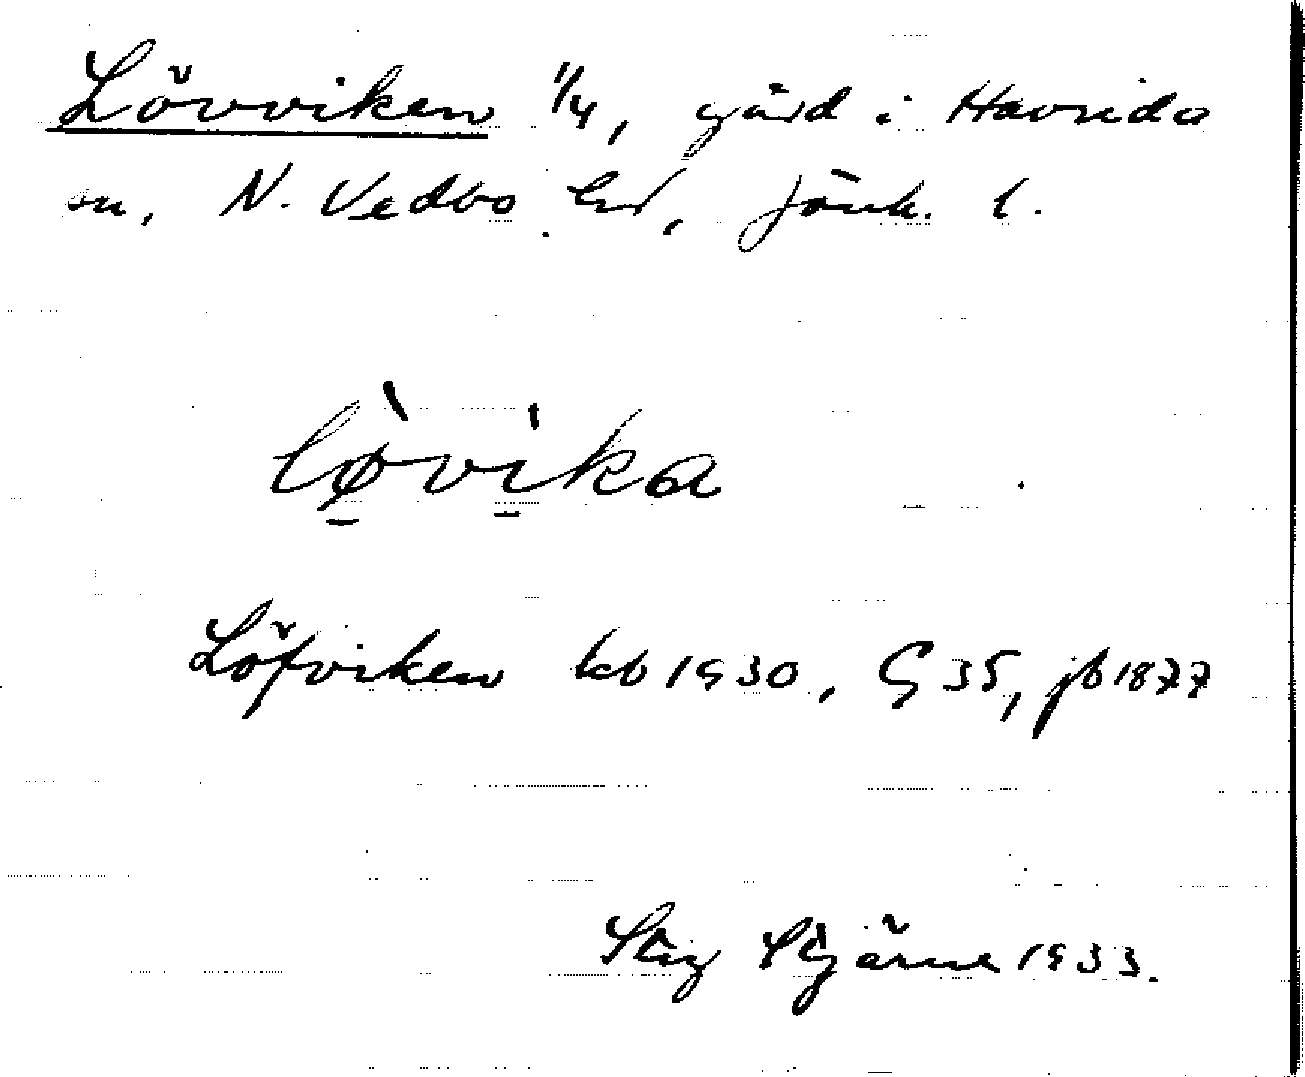 Lövviken 1/4, gård i Haurida
sn, N. Vedbo hd, Jönk. l.
lø̱̀vi̱ka
Löfviken kb 1930, G 35, jb 1877
Stig Stjärne 1933.